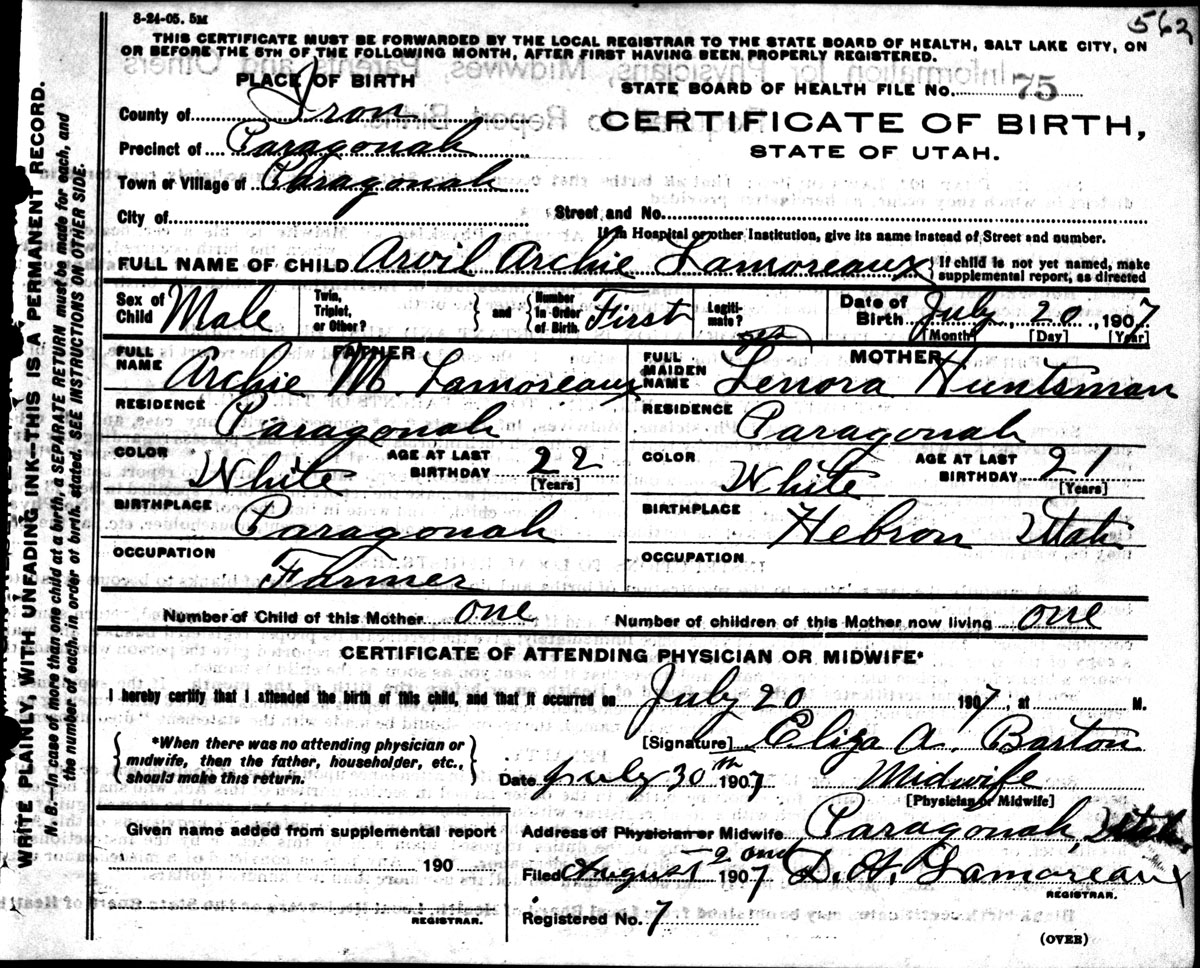 8-24-05. 5M
562
THIS CERTIFICATE MUST BE FORWARDED BY THE LOCAL REGISTRAR TO THE STATE BOARD OF HEALTH, SALT LAKE CITY, ON
OR BEFORE THE 5TH OF THE FOLLOWING MONTH, AFTER FIRST HAVING BEEN PROPERLY REGISTERED.
PLACE OF BIRTH
STATE BOARD OF HEALTH FILE NO. 75
County of Iron
CERTIFICATE OF BIRTH,
Precinct of Paragonah
STATE OF UTAH.
Town or Village of Paragonah
City of Street and No.
If in Hospital or other Institution, give its name instead of Street and number.
FULL NAME OF CHILD Arvil Archie Lamoreaux } If child is not yet named, make supplemental report, as directed
Sex of Child Male Twin, Triplet, or Other? } and { Number in Order of Birth. First Legiti-mate? yes Date of Birth July, 20, 1907
[Month] [Day] [Year]
FATHER
FULL NAME Archie M Lamoreaux
RESIDENCE Paragonah
COLOR White AGE AT LAST BIRTHDAY 22
[Years]
BIRTHPLACE Paragonah
OCCUPATION Farmer
MOTHER
FULL MAIDEN NAME Lenora Huntsman
RESIDENCE Paragonah
COLOR White AGE AT LAST BIRTHDAY 21
[Years]
BIRTHPLACE Hebron Utah
OCCUPATION
Number of Child of this Mother one Number of children of this Mother now living one
CERTIFICATE OF ATTENDING PHYSICIAN OR MIDWIFE*
I hereby certify that I attended the birth of this child, and that it occurred on July 20 1907, at M.
*When there was no attending physician or
midwife, then the father, householder, etc.,
should make this return.
[Signature] Eliza A. Barton
Date July 30th 1907 Midwife
[Physician or Midwife]
Given name added from supplemental report
190
REGISTRAR.
Address of Physician or Midwife Paragonah, Utah.
Filed August 2ond 1907 D. A. Lamoreaux
REGISTRAR.
Registered No. 7
(OVER)
WRITE PLAINLY, WITH UNFADING INK—THIS IS A PERMANENT RECORD.
N. B.—In case of more than one child at a birth, a SEPARATE RETURN must be made for each, and
the number of each, in order of birth, stated. SEE INSTRUCTIONS ON OTHER SIDE.